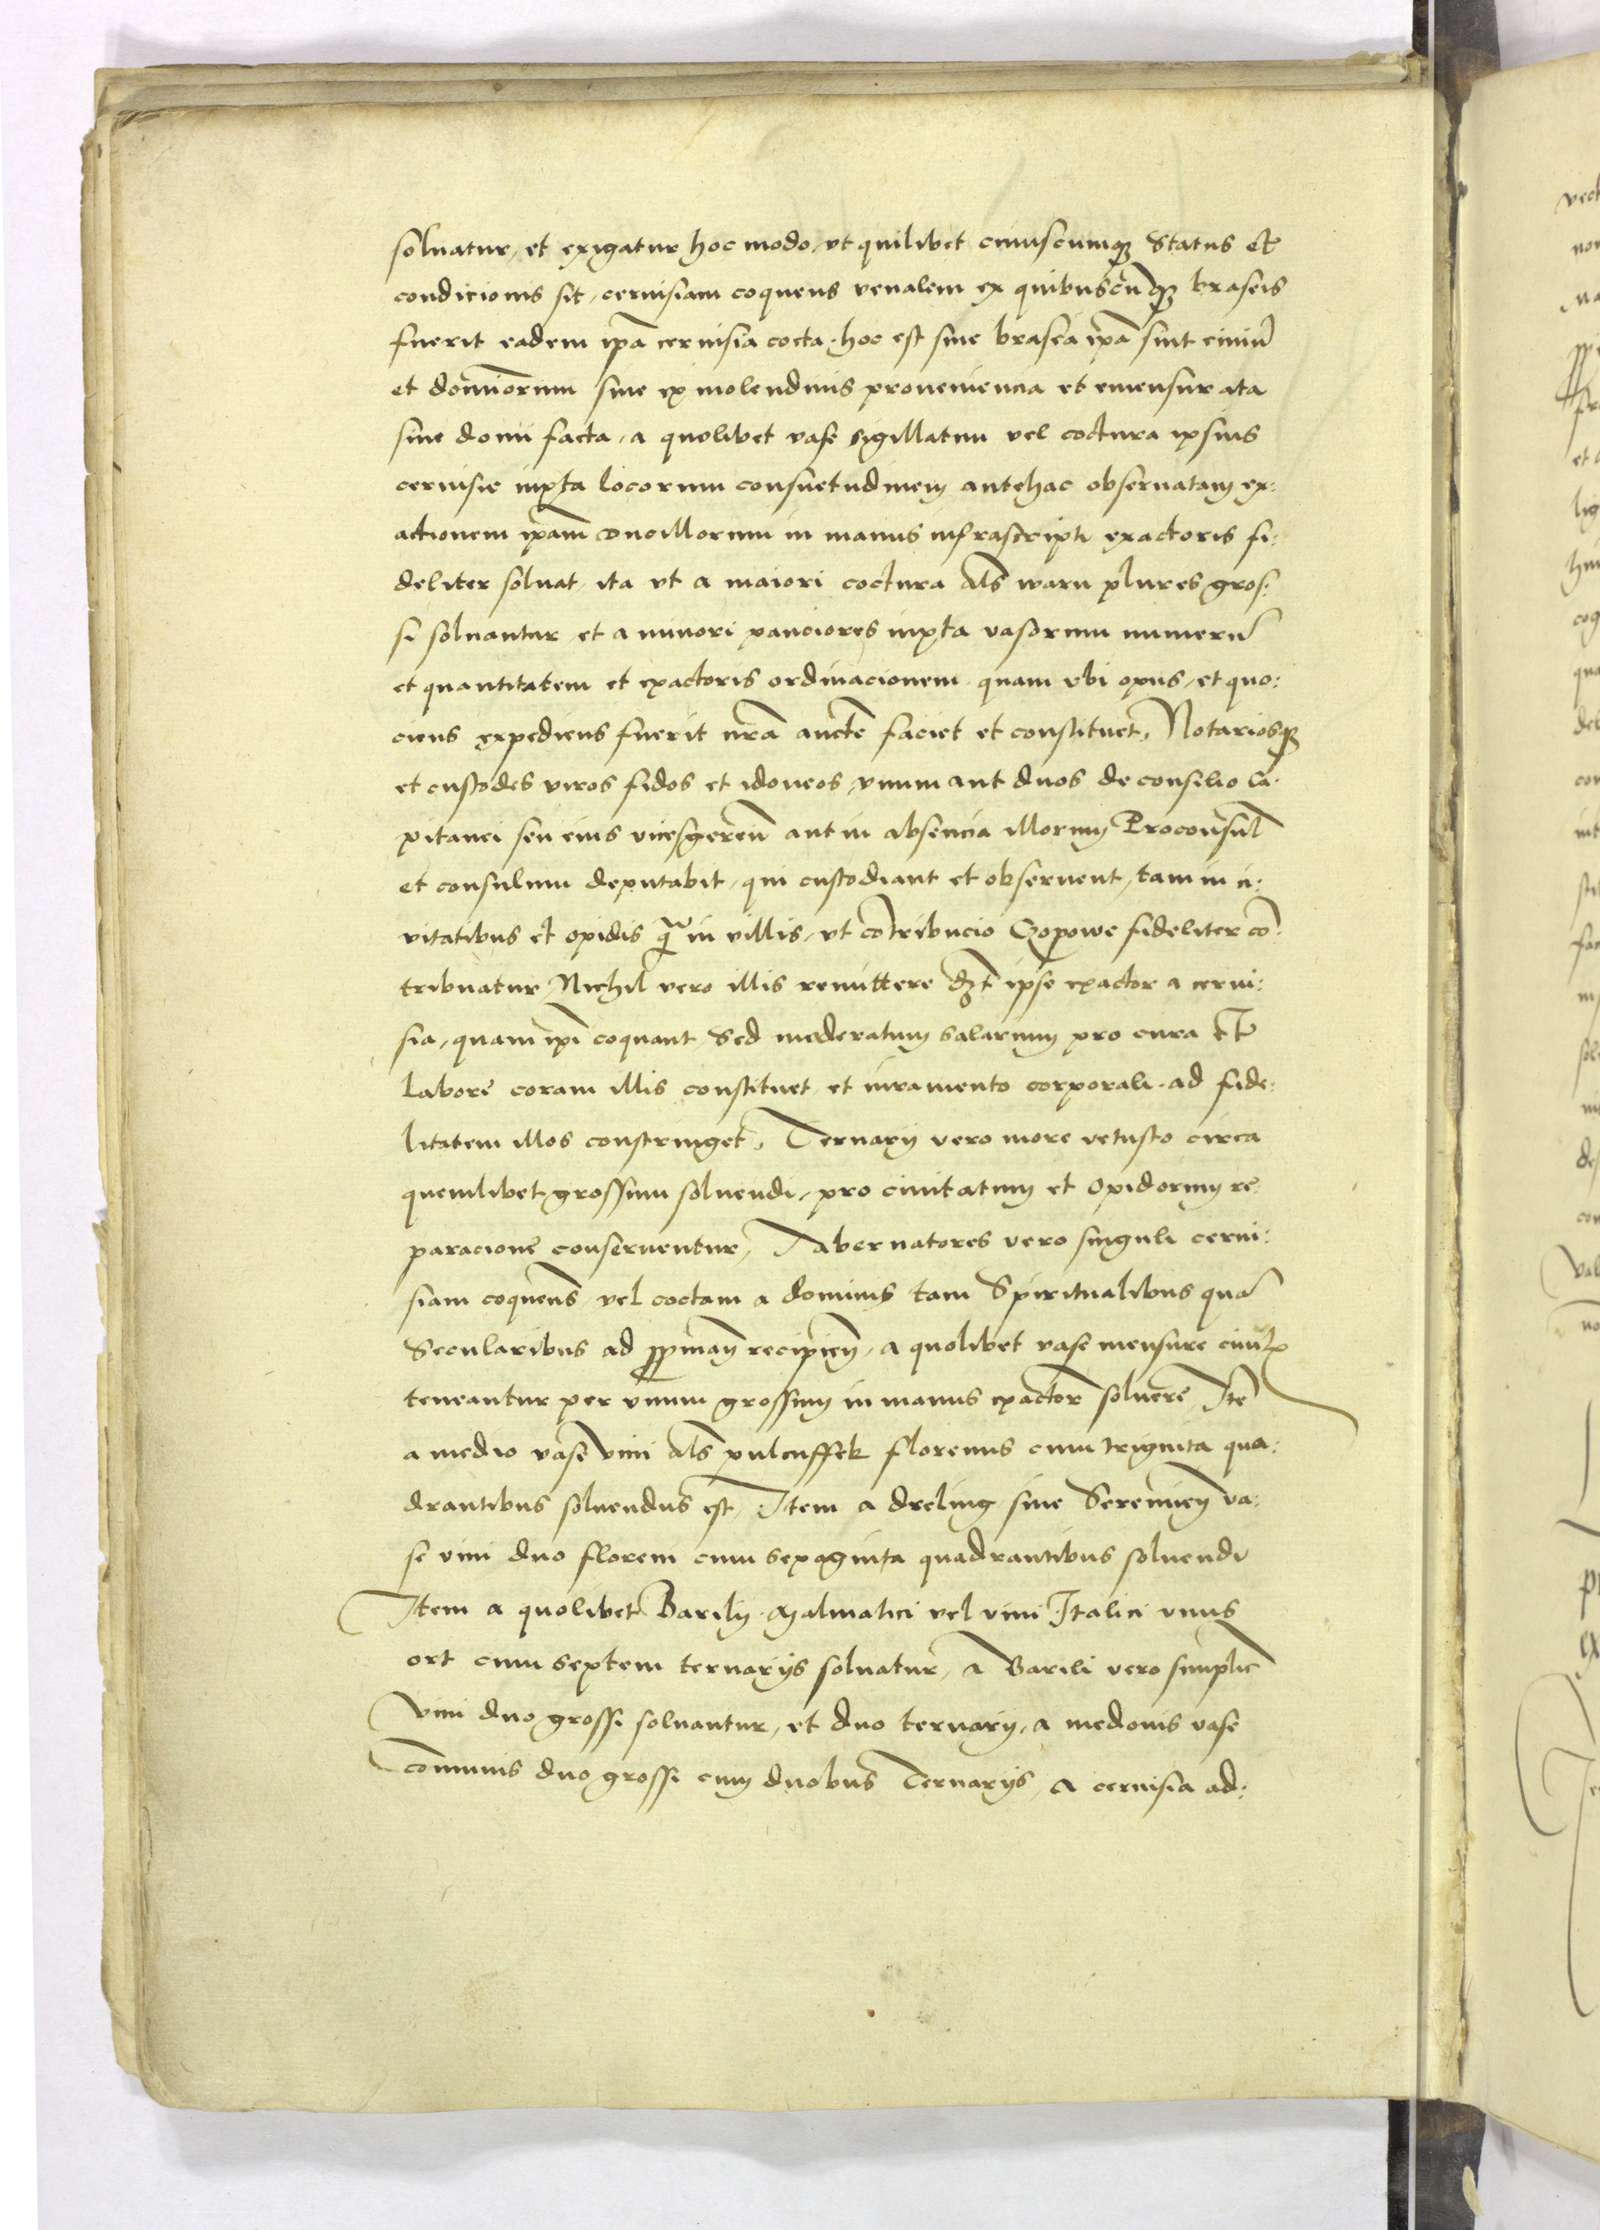 soluatur, et exigatur hoc modo, vt quilibet cuiuscumqꝫ Status et
condicionis sit, ceruisiam coquens venalem ex quibuscũqꝫ braseis
fuerit eadem ip̃a ceruisia cocta. hoc est siue brasea ip̃a sint ciuiũ
et domĩorum siue ex molendinis proueniencia et emensurata
siue domi facta, a quolibet vase sigillatim vel coctura ipsius
ceruisie iuxta locorum consuetudinem antehac obseruatam ex:
actionem ip̃am ducillorum in manus infrascripti exactoris fi:
deliter soluat, ita vt a maiori coctura als̃ waru plures gros:
si soluantur et a minori pauciores iuxta vasorum numerũ
et quantitatem et exactoris ordinacionem. quam vbi opus, et quo:
ciens expediens fuerit nr̃a aucte faciet et constituet, Notariosqꝫ
et custodes viros fidos et idoneos, vnum aut duos de consilio Ca:
pitanei seu eius vicesgereñ aut in absencia illorum Proconsul̃
et consulum deputabit, qui custodiant et obseruent, tam in ci:
vitatibus et opidis q̃ in villis, vt cõtribucio Czopowe fideliter cõ:
tribuatur, Nichil vero illis remittere dꝫt ipse exactor a cerui:
sia, quam ip̃i coquant, Sed moderatum salarium pro cura et
Labore coram illis constituet et iuramento corporali. ad fide:
litatem illos constringet, Ternarij vero more vetusto circa
quemlibet grossum soluendi, pro ciuitatum et Opidorum re
paracione conseruentur, Tabernatores vero singuli cerui:
siam coqueñs vel coctam a dominis tam Spiritualibus quã
Secularibus ad recipieñ, a quolibet vase mensure
teneantur per vnum grossum in manus exactor̃ soluere Itẽ
a medio vase vini als̃ pulcuffek florenus cum triginta qua:
drantibus soluendus est, Item a dreling siue Seremieñ va:
se vini duo floreni cum sexaginta quadrantibus soluendi
Item a quolibet Barilij Malmatici vel vini Italici vnus
ort cum septem ternarijs soluatur, A Barili vero simplic̃
Vini duo grossi soluantur, et duo ternarij, a medonis vase
Cõmunis duo grossi cum duobus Ternarijs, A ceruisia ad: